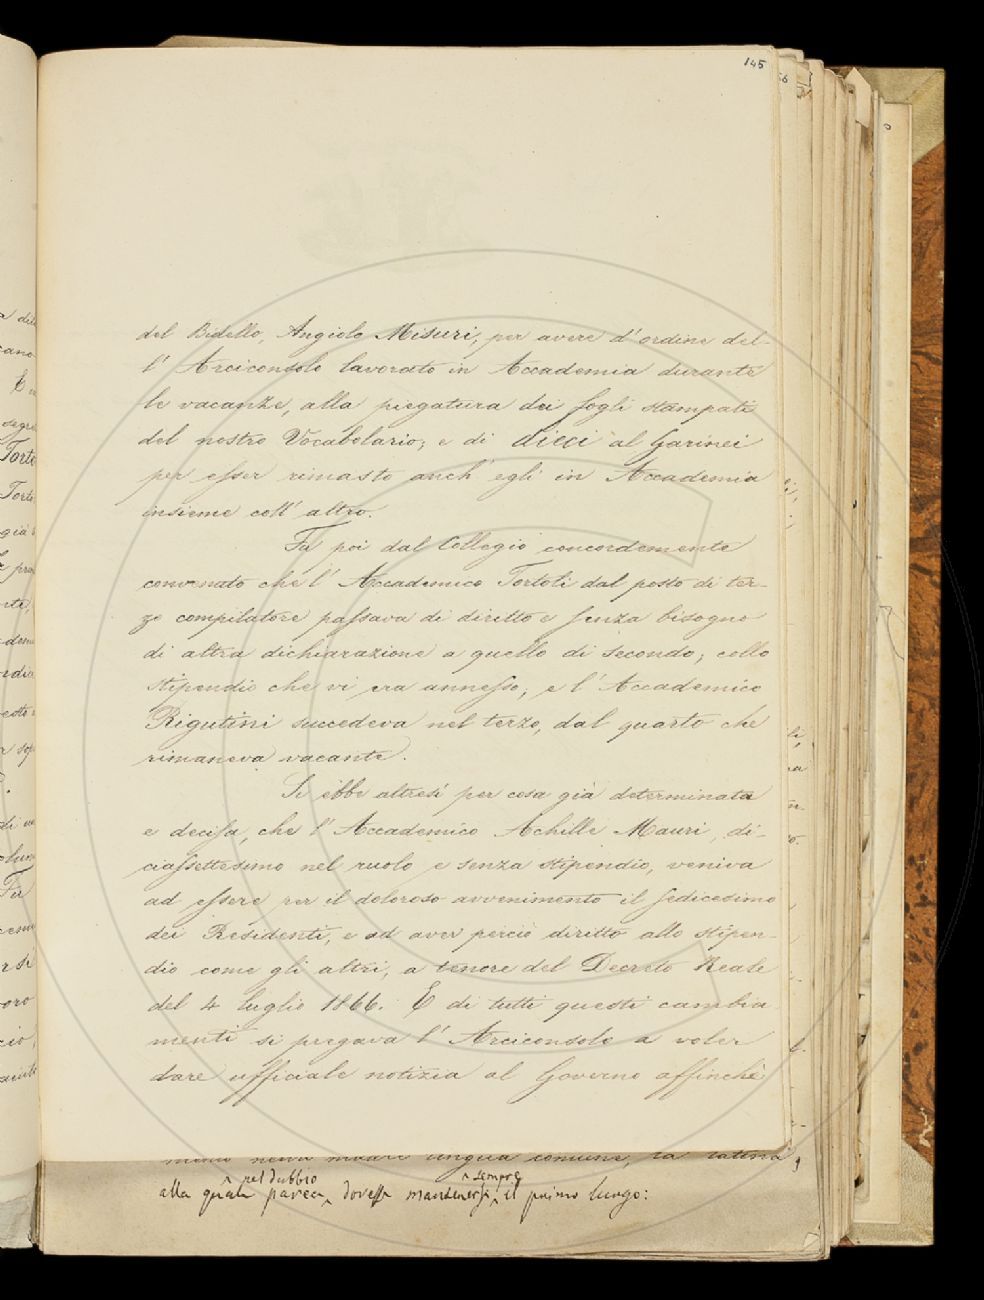 145
56
del Bidello, Angiolo Misuri, per avere d'ordine del-
l'Arciconsolo lavorato in Accademia durante
le vacanze, alla piegatura dei fogli stampati
del nostro Vocabolario; e di dieci al Garinei
per esser rimasto anch'egli in Accademia
insieme coll'altro.
Fu poi dal Collegio concordemente
convenuto che l'Accademico Tortoli dal posto di ter-
zo compilatore passava di diritto e senza bisogno
di altra dichiarazione a quello di secondo, collo
stipendio che vi era annesso, e l'Accademico
Rigutini succedeva nel terzo, dal quarto che
rimaneva vacante.
Si ebbe altresì per cosa già determinata
e decisa, che l'Accademico Achille Mauri, di-
ciassettesimo nel ruolo e senza stipendio, veniva
ad essere per il doloroso avvenimento il sedicesimo
dei Residenti, e ad aver perciò diritto allo stipen-
dio come gli altri, a tenore del Decreto Reale
del 4 luglio 1866. E di tutti questi cambia-
menti si pregava l'Arciconsolo a voler
dare ufficiale notizia al Governo affinchè
lingua comune, la latina
nel dubbio sempre
alla quale parea dovesse mantenersi il primo luogo: